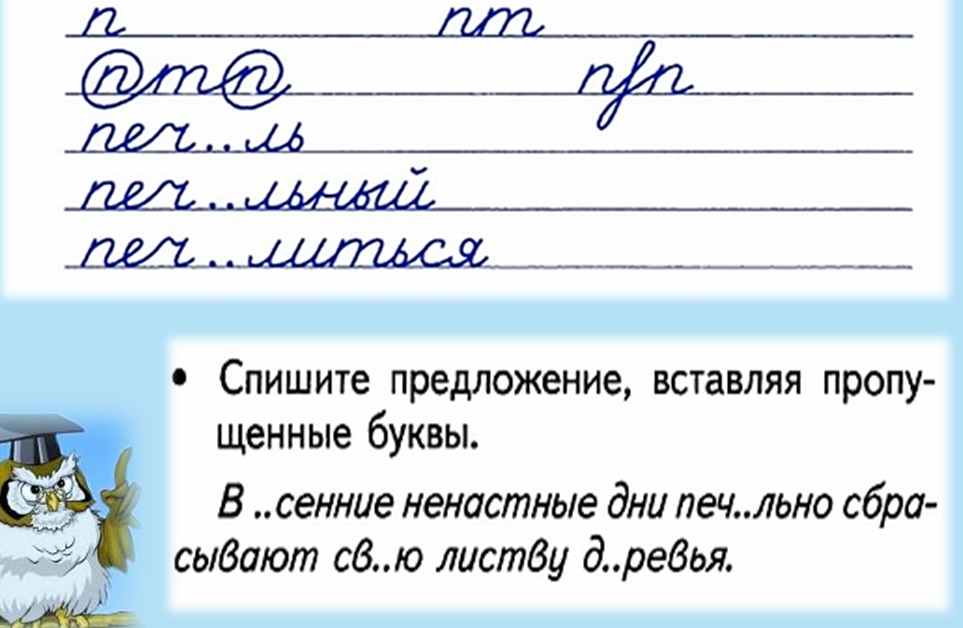 п пт
птп пfп
печ..ль
печ..льный
печ..литься
• Спишите предложение, вставляя пропу-
щенные буквы.
В ..сенние ненастные дни печ..льно сбра-
сывают св..ю листву д..ревья.